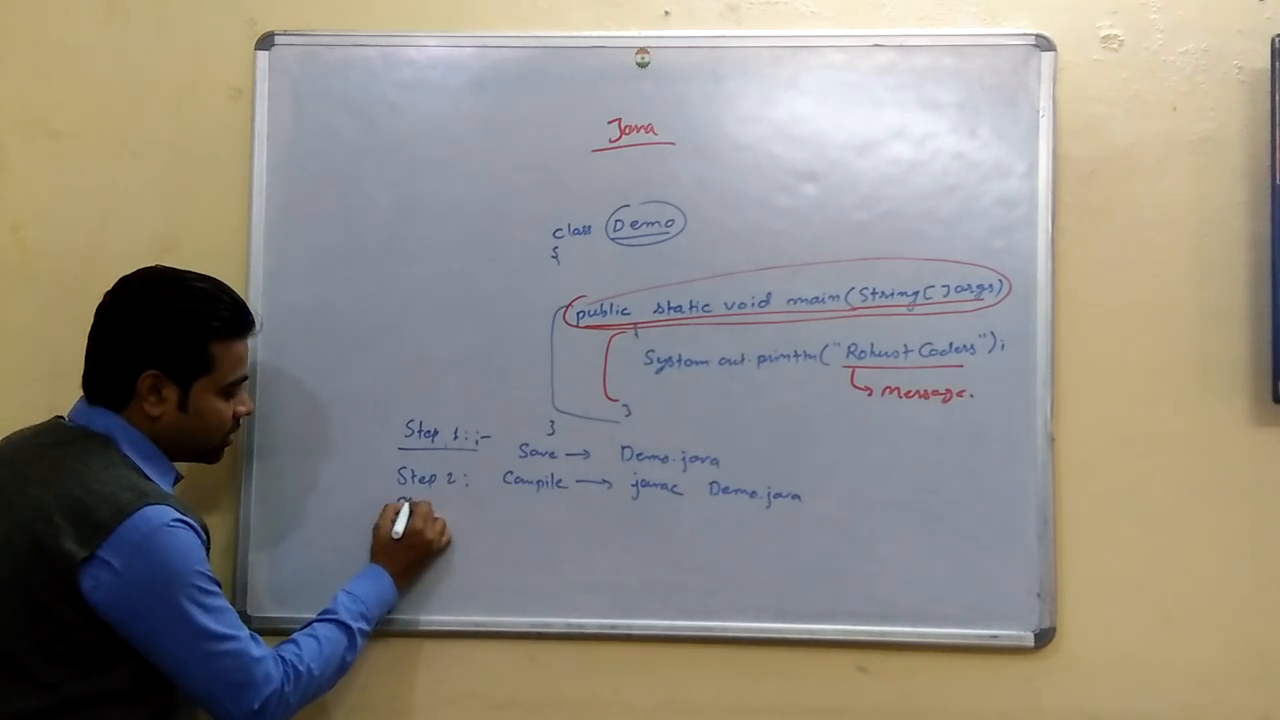 Java
class Demo
{
public static void main(String[]args)
{
System.out.println("Robust Coders");
Message.
}
}
Step 1:;-
Save → Demo.java
Step 2: Compile → javac Demo.java